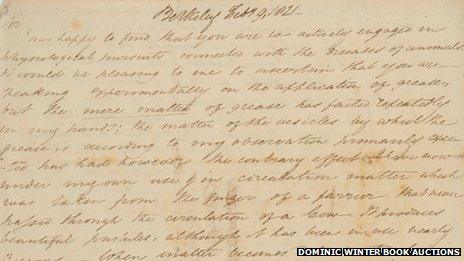 Berkeley Feby 9, 1821 -
Sir
I am happy to find that you are so actively engaged in
physiological pursuits connected with the diseases of animals
It would be pleasing to me to ascertain that you are
speaking experimentally on the application of grease,
but the mere matter of grease has failed repeatedly
in my hands; the matter of the vesicles by which the
grease is according to my observation primarily exci-
ted has had however the contrary effect. I have now
under my own use & in circulation matter which
was taken from the finger of a farrier that never
passed through the circulation of a Cow. It produces
beautiful pustules, although it has been in use nearly
when matter becomes
DOMINIC WINTER BOOK AUCTIONS